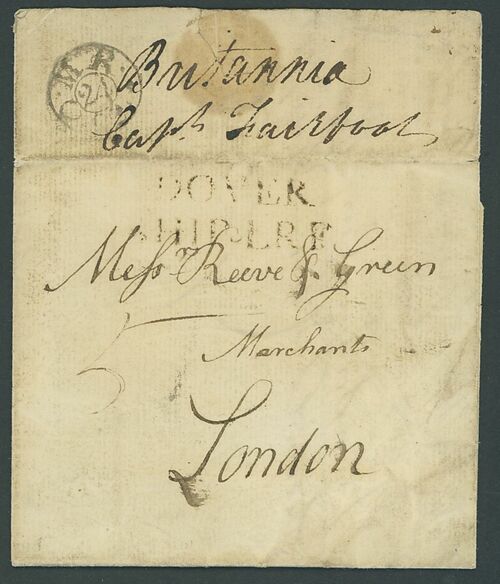 MR
24
Britannia
Capt. Fairfoot
DOVER
SHIP-LRE
Messrs Reeve & Green
5
Merchants
London